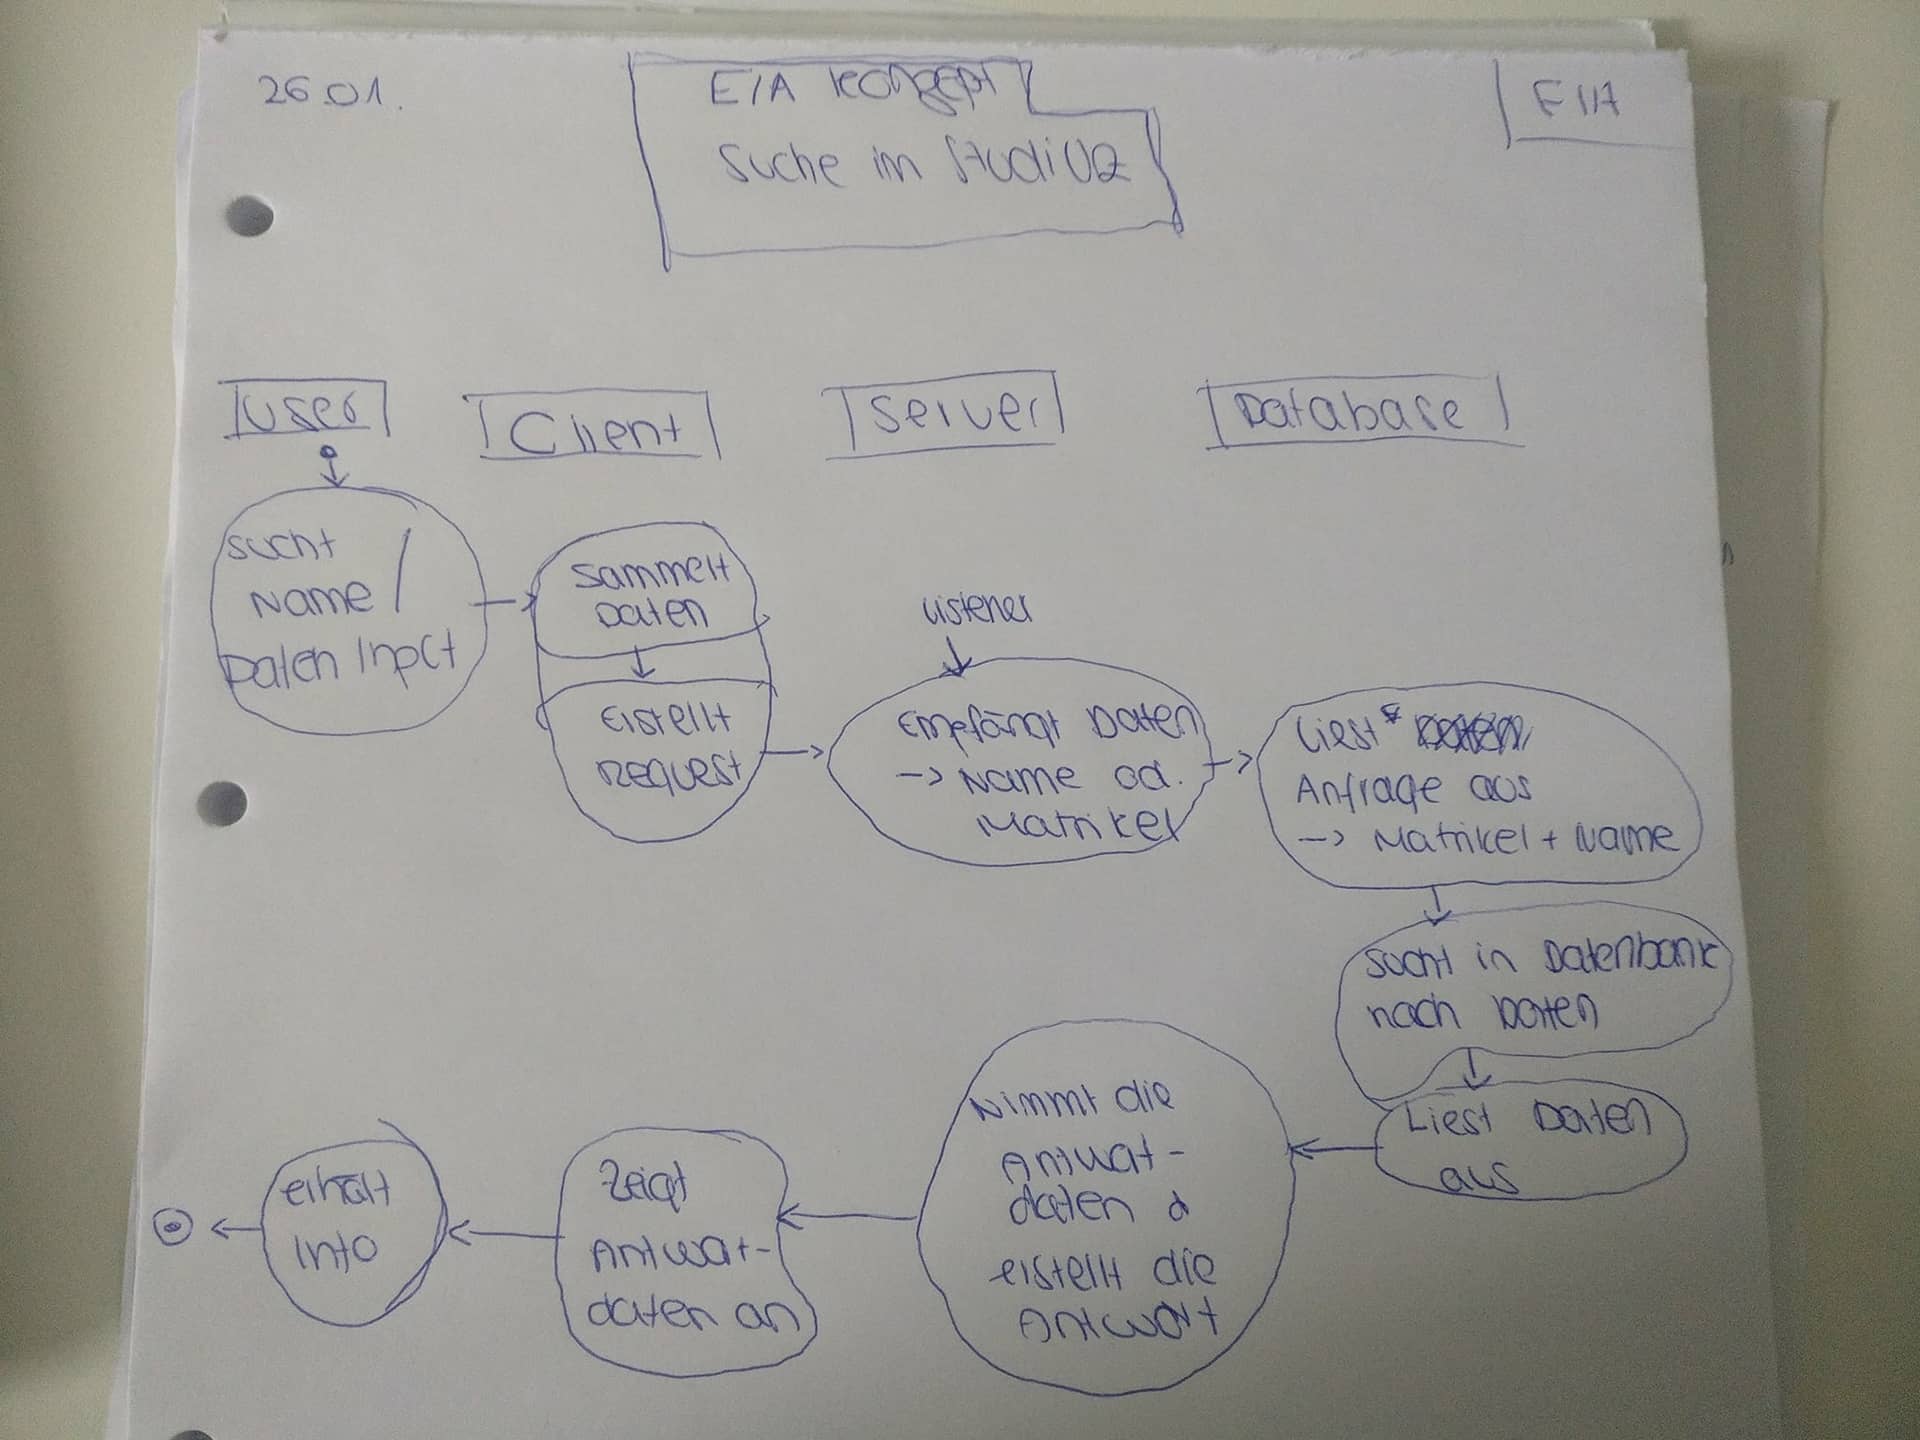 26.01.
E/A Konzept
Suche im StudiVZ
EIA
User
Client
Server
Database
sucht
Name /
Daten Input
sammelt
Daten
Erstellt
request
Listener
Empfängt Daten
-> Name od.
Matrikel
Liest
Anfrage aus
-> Matrikel + Name
Sucht in Datenbank
nach Daten
Liest Daten
aus
Nimmt die
Antwat-
daten &
erstellt die
Antwort
Zeigt
Antwat-
daten an
erhält
Info